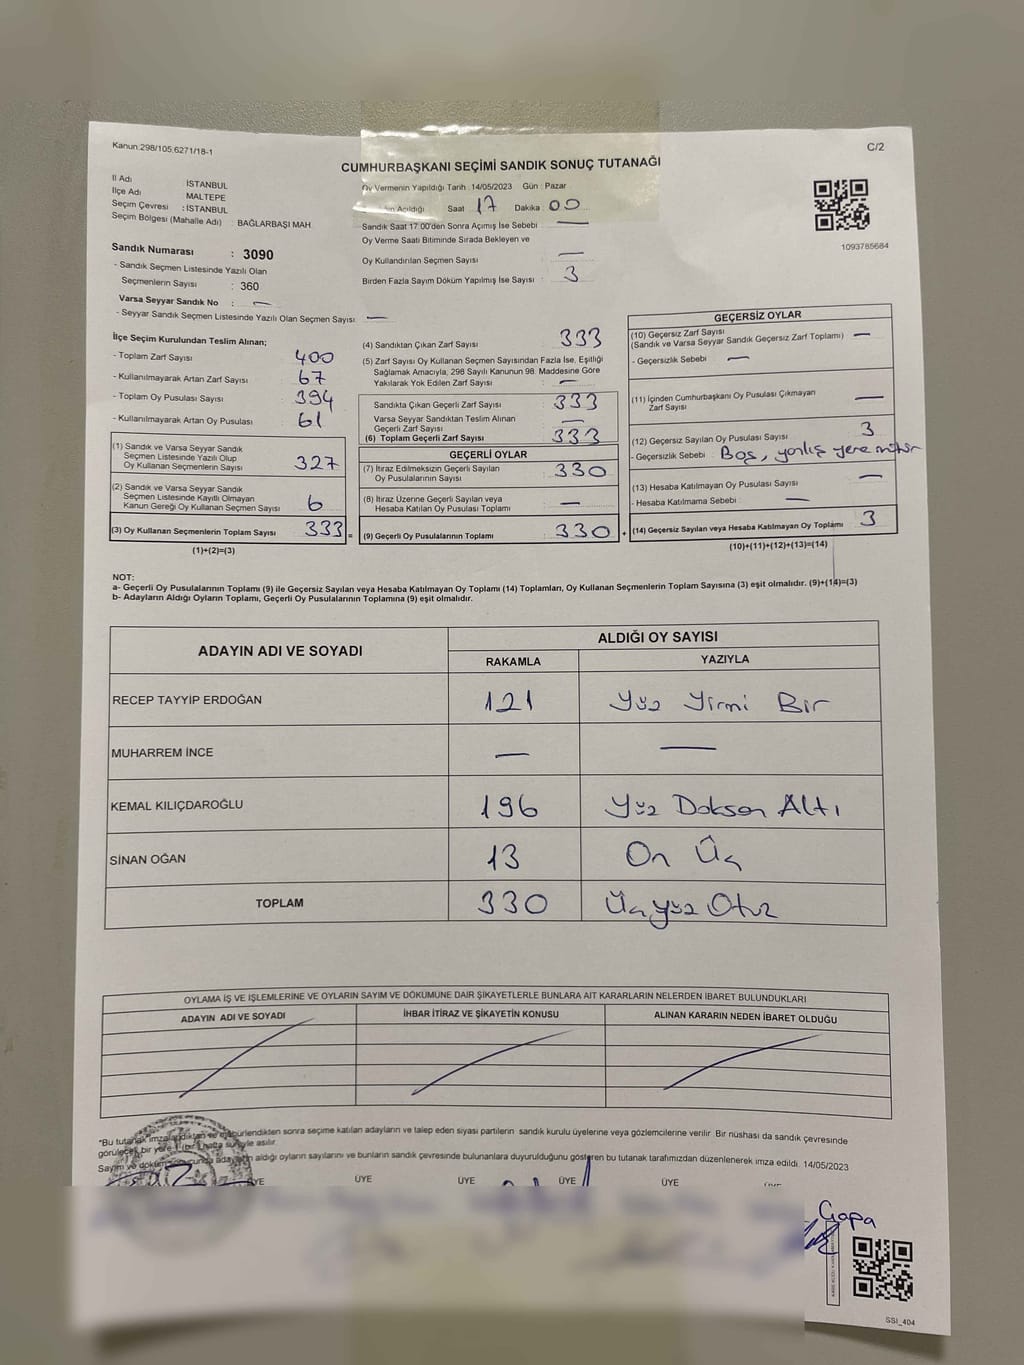 Kanun:298/105,6271/18-1
C/2
CUMHURBAŞKANI SEÇİMİ SANDIK SONUÇ TUTANAĞI
İl Adı İSTANBUL
İlçe Adı MALTEPE
Seçim Çevresi : İSTANBUL
Seçim Bölgesi (Mahalle Adı) : BAĞLARBAŞI MAH.
Sandık Numarası : 3090
- Sandık Seçmen Listesinde Yazılı Olan
Seçmenlerin Sayısı : 360
Varsa Seyyar Sandık No : —
- Seyyar Sandık Seçmen Listesinde Yazılı Olan Seçmen Sayısı: —
Oy Vermenin Yapıldığı Tarih : 14/05/2023 Gün : Pazar
Açıldığı Saat 17 Dakika 00
Sandık Saat 17.00'den Sonra Açımış İse Sebebi : —
Oy Verme Saati Bitiminde Sırada Bekleyen ve
Oy Kullandırılan Seçmen Sayısı : —
Birden Fazla Sayım Döküm Yapılmış İse Sayısı : 3
1093785684
İlçe Seçim Kurulundan Teslim Alınan;
- Toplam Zarf Sayısı : 400
- Kullanılmayarak Artan Zarf Sayısı : 67
- Toplam Oy Pusulası Sayısı : 394
- Kullanılmayarak Artan Oy Pusulası : 61
(1) Sandık ve Varsa Seyyar Sandık
Seçmen Listesinde Yazılı Olup
Oy Kullanan Seçmenlerin Sayısı : 327
(2) Sandık ve Varsa Seyyar Sandık
Seçmen Listesinde Kayıtlı Olmayan
Kanun Gereği Oy Kullanan Seçmen Sayısı : 6
(3) Oy Kullanan Seçmenlerin Toplam Sayısı : 333 =
(1)+(2)=(3)
(4) Sandıktan Çıkan Zarf Sayısı : 333
(5) Zarf Sayısı Oy Kullanan Seçmen Sayısından Fazla İse, Eşitliği
Sağlamak Amacıyla, 298 Sayılı Kanunun 98. Maddesine Göre
Yakılarak Yok Edilen Zarf Sayısı : —
Sandıkta Çıkan Geçerli Zarf Sayısı : 333
Varsa Seyyar Sandıktan Teslim Alınan
Geçerli Zarf Sayısı : —
(6) Toplam Geçerli Zarf Sayısı : 333
GEÇERLİ OYLAR
(7) İtiraz Edilmeksizin Geçerli Sayılan
Oy Pusulalarının Sayısı : 330
(8) İtiraz Üzerine Geçerli Sayılan veya
Hesaba Katılan Oy Pusulası Toplamı : —
(9) Geçerli Oy Pusulalarının Toplamı : 330 +
GEÇERSİZ OYLAR
(10) Geçersiz Zarf Sayısı
(Sandık ve Varsa Seyyar Sandık Geçersiz Zarf Toplamı) : —
- Geçersizlik Sebebi : —
(11) İçinden Cumhurbaşkanı Oy Pusulası Çıkmayan
Zarf Sayısı : —
(12) Geçersiz Sayılan Oy Pusulası Sayısı : 3
- Geçersizlik Sebebi : Boş, yanlış yere mühür
(13) Hesaba Katılmayan Oy Pusulası Sayısı : —
- Hesaba Katılmama Sebebi : —
(14) Geçersiz Sayılan veya Hesaba Katılmayan Oy Toplamı : 3
(10)+(11)+(12)+(13)=(14)
NOT:
a- Geçerli Oy Pusulalarının Toplamı (9) ile Geçersiz Sayılan veya Hesaba Katılmayan Oy Toplamı (14) Toplamları, Oy Kullanan Seçmenlerin Toplam Sayısına (3) eşit olmalıdır. (9)+(14)=(3)
b- Adayların Aldığı Oyların Toplamı, Geçerli Oy Pusulalarının Toplamına (9) eşit olmalıdır.
ADAYIN ADI VE SOYADI ALDIĞI OY SAYISI
RAKAMLA YAZIYLA
RECEP TAYYİP ERDOĞAN 121 Yüz Yirmi Bir
MUHARREM İNCE — —
KEMAL KILIÇDAROĞLU 196 Yüz Doksan Altı
SİNAN OĞAN 13 On Üç
TOPLAM 330 Üçyüz Otuz
OYLAMA İŞ VE İŞLEMLERİNE VE OYLARIN SAYIM VE DÖKÜMÜNE DAİR ŞİKAYETLERLE BUNLARA AİT KARARLARIN NELERDEN İBARET BULUNDUKLARI
ADAYIN ADI VE SOYADI İHBAR İTİRAZ VE ŞİKAYETİN KONUSU ALINAN KARARIN NEDEN İBARET OLDUĞU
*Bu tutanak imzalandıktan ve mühürlendikten sonra seçime katılan adayların ve talep eden siyasi partilerin sandık kurulu üyelerine veya gözlemcilerine verilir. Bir nüshası da sandık çevresinde
görülecek bir yere 1 (bir) hafta süreyle asılır.
Sayım ve döküm sonucunda adayların aldığı oyların sayılarını ve bunların sandık çevresinde bulunanlara duyurulduğunu gösteren bu tutanak tarafımızdan düzenlenerek imza edildi. 14/05/2023
ÜYE ÜYE ÜYE ÜYE ÜYE
SSI_404